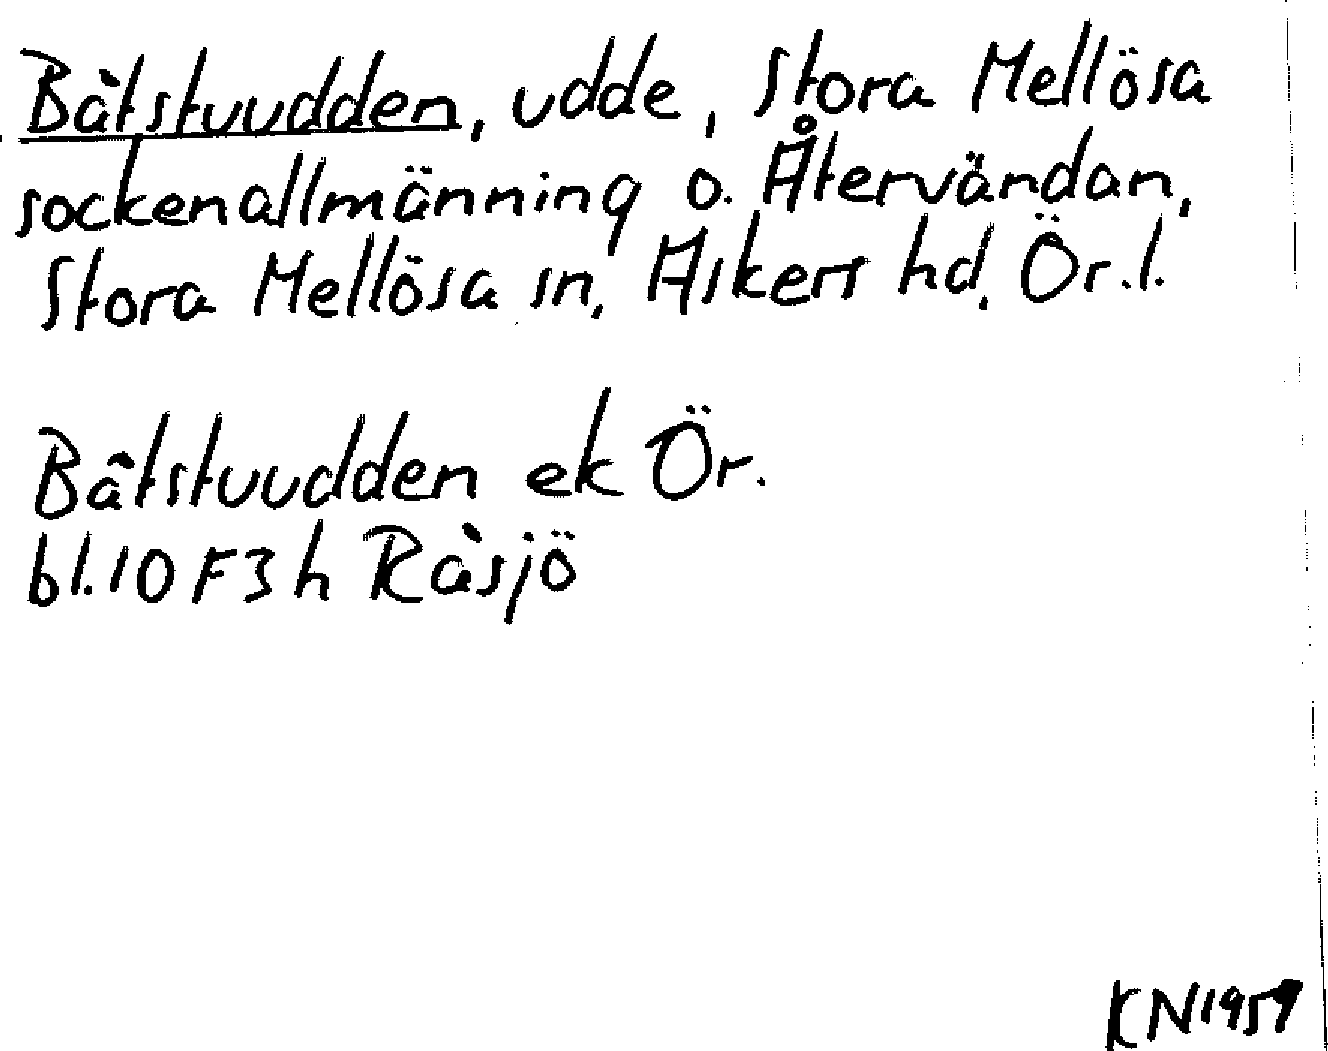 Båtstuudden, udde, Stora Mellösa
sockenallmänning o. Återvändan,
Stora Mellösa sn, Askers hd, Ör.l.
Båtstuudden ek Ör.
bl.10F3h Råsjö
KN1959